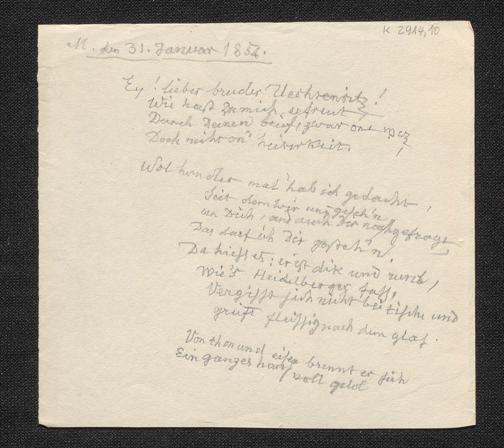 K 2914,10
M. den 31. Januar 1852.
Ey! lieber bruder
Wie hast Du mich erfreut,
Durch Deinen brief, zwar one
Dock nicht on' heiterkeit.
Wol hundter mal hab ich gedacht,
Seit dem wir uns geseh'n
an Dich, und auch Dir nachgefragt
Das darf ich Dir gesteh'n
Da hiess es: er ist dik und rund,
Wie's Heidelberger fass,
Vergisst sich nicht bei tische und
greift fleissig nach dem glas.
Von thon und eisen brennt er sich
Ein ganzes haus voll geld